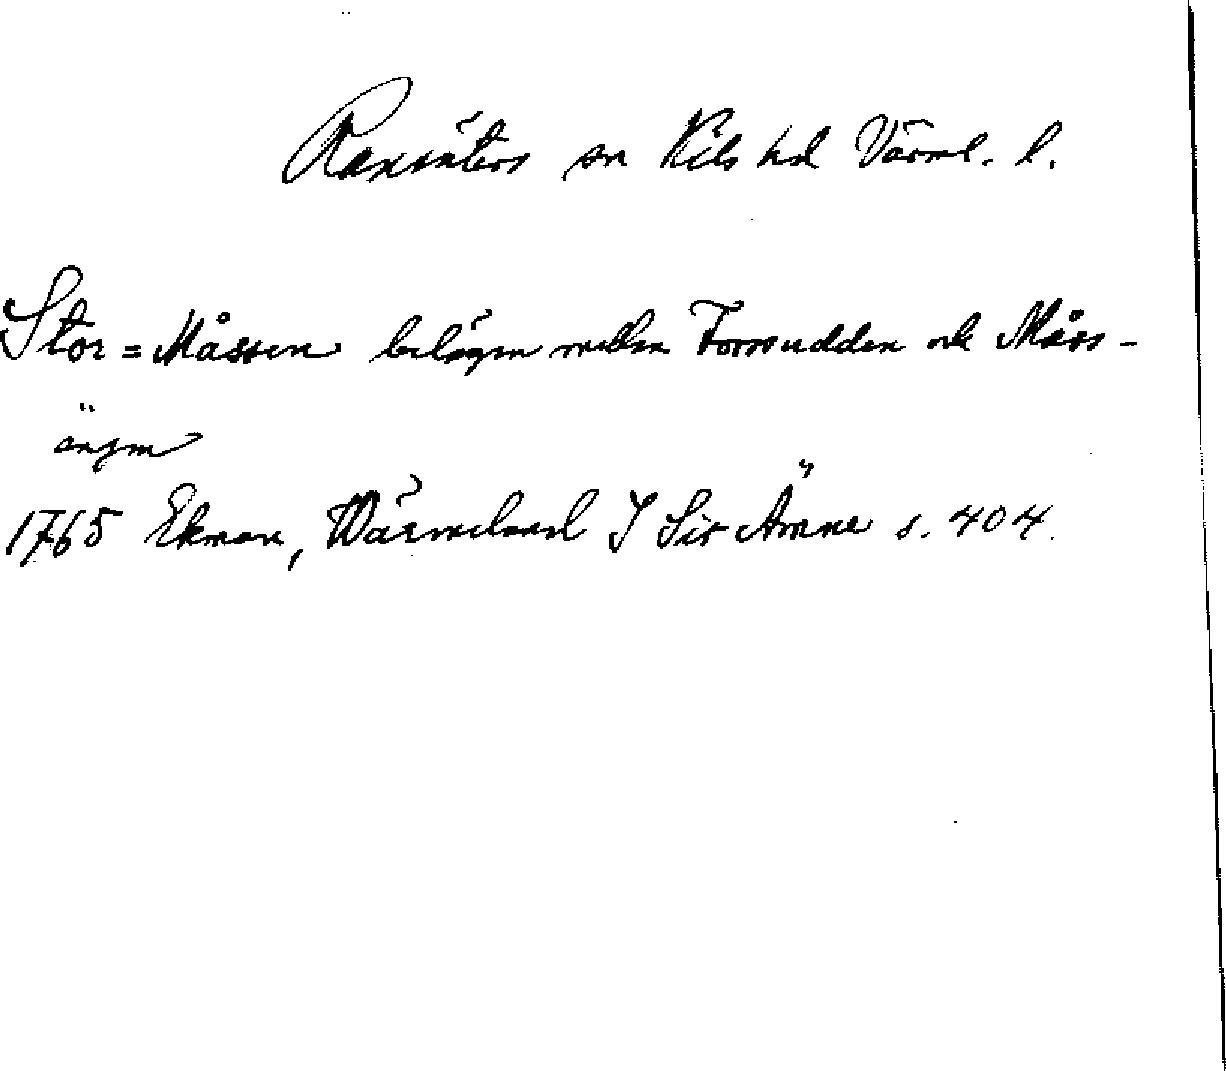 Ransäters sn Kils hd Värml. l.
Stor=Måssen belägen mellan Forsudden och Måss-
ängen
1765 Ekman, Wärmeland I Sit Ämne s. 404.